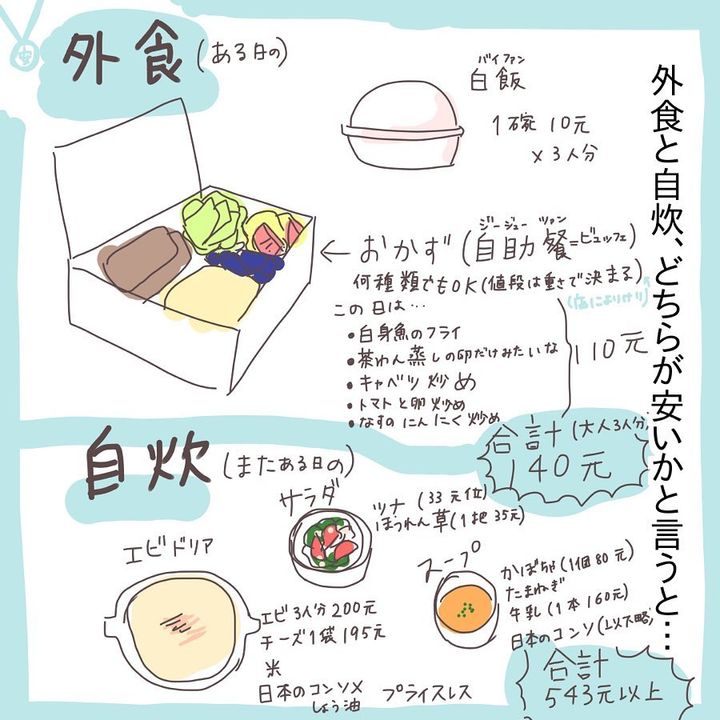 外食と自炊、どちらが安いかと言うと…
外食(ある日の)
バイファン
白飯
1碗 10元
×3人分
ジージューツァン
←おかず(自助餐=ビュッフェ)
何種類でもOK(値段は重さで決まる)
(店によりけり)
この日は…
•白身魚のフライ
•茶わん蒸しの卵だけみたいな
•キャベツ炒め
•トマトと卵炒め
•なすのにんにく炒め
110元
合計(大人3人分)
140元
自炊(またある日の)
サラダ
ツナ(33元位)
ほうれん草(1把35元)
エビドリア
エビ3人分200元
チーズ1袋195元
米
日本のコンソメ
しょう油
プライスレス
スープ
かぼちゃ(1個80元)
たまねぎ
牛乳(1本160元)
日本のコンソ(以下略)
合計
543元以上